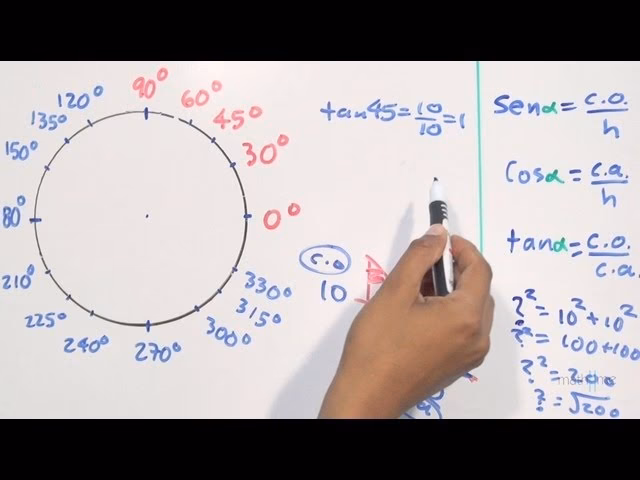 90°
60°
45°
30°
0°
120°
135°
150°
80°
210°
225°
240°
270°
300°
315°
330°
tan45=10/10=1
c.o
10
senα=c.o./h
cosα=c.a./h
tanα=c.o./c.a.
?²=10²+10²
?²=100+100
?²=200
?=√200